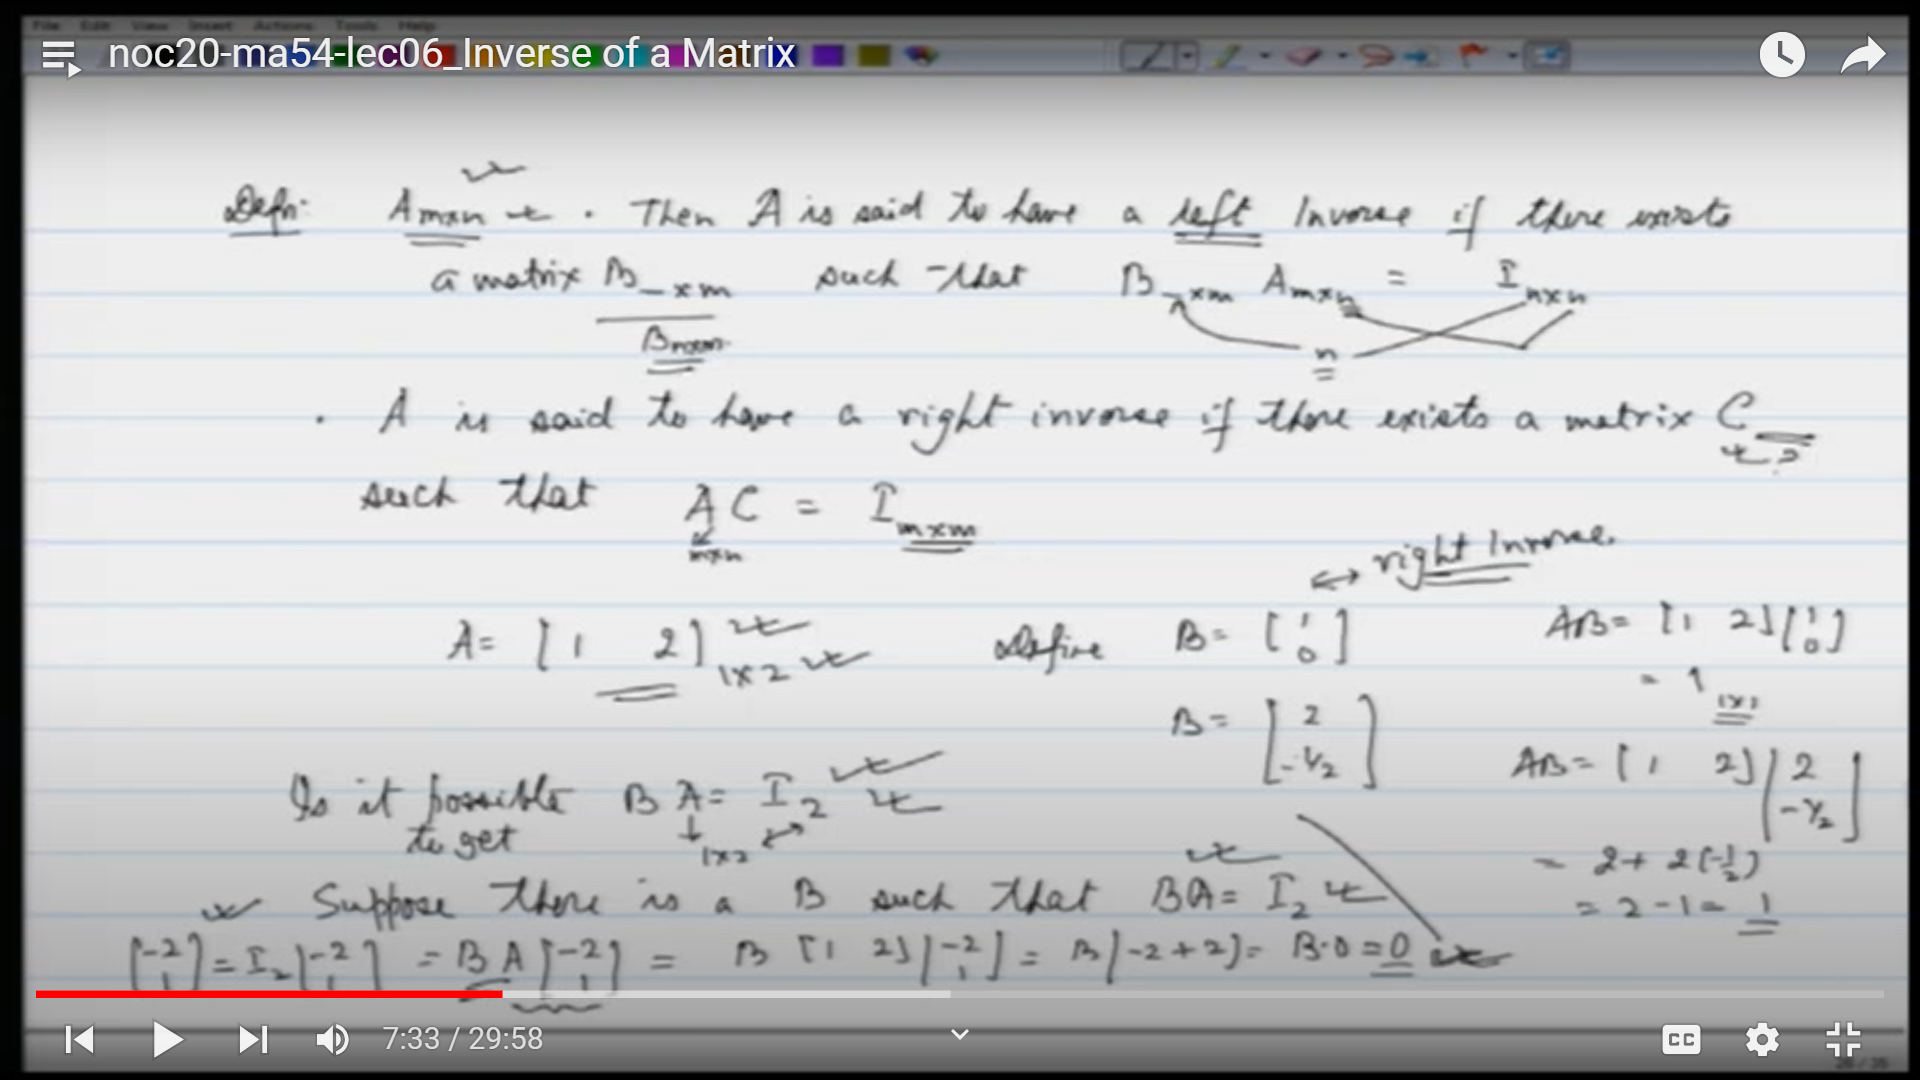 File Edit View Insert Actions Tools Help
noc20-ma54-lec06_Inverse of a Matrix
Defn: A m×n. Then A is said to have a left Inverse if there exists
a matrix B _×m such that B _×m A m×n = I n×n
B n×m
n
. A is said to have a right inverse if there exists a matrix C
?
such that A C = I m×m
m×n
↔ right Inverse.
A = [1 2] 1×2 Define B = [1 0] AB = [1 2] [1 0]
= 1 1×1
B = [2 -1/2] AB = [1 2] [2 -1/2]
Is it possible B A = I 2
to get 1×2
= 2 + 2(-1/2)
= 2 - 1 = 1
Suppose there is a B such that BA = I 2
[-2 1] = I 2 [-2 1] = B A [-2 1] = B [1 2] [-2 1] = B[-2+2] = B·0 = 0
7:33 / 29:58
CC